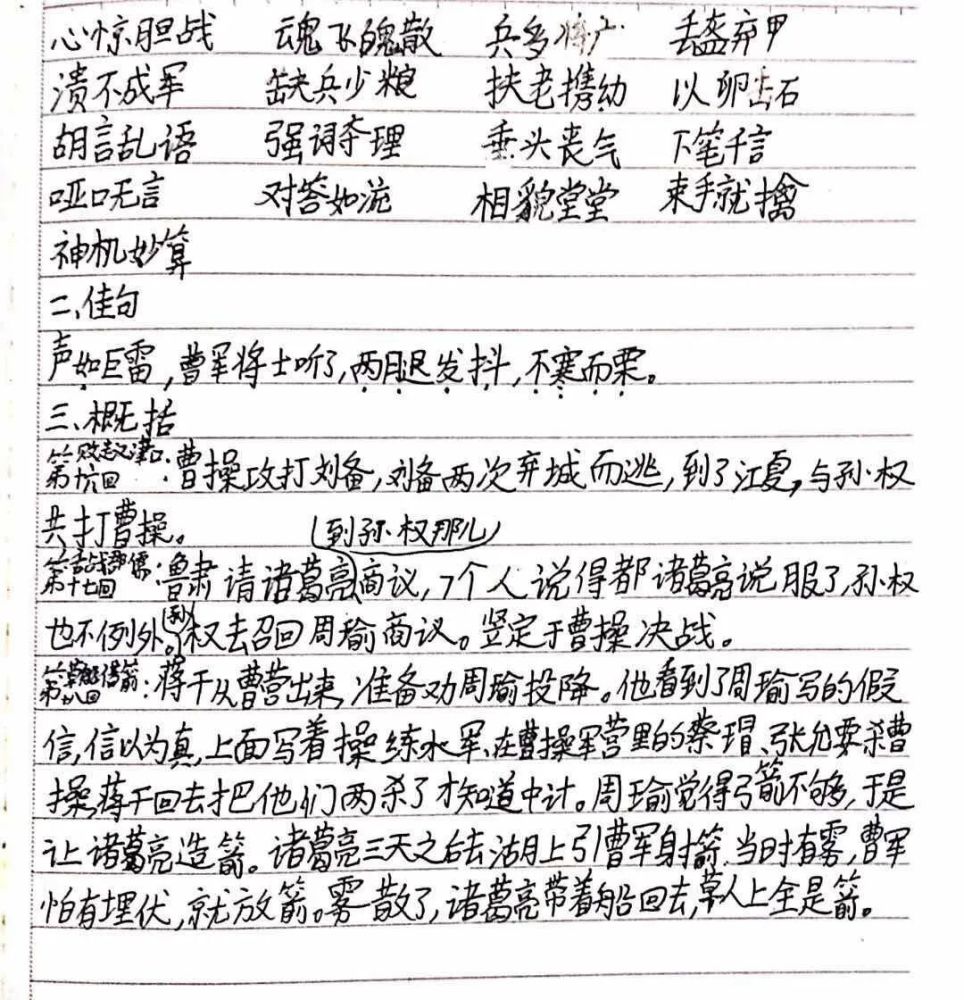 心惊胆战 魂飞魄散 兵多将广 丢盔弃甲
溃不成军 缺兵少粮 扶老携幼 以卵击石
胡言乱语 强词夺理 垂头丧气 下笔千言
哑口无言 对答如流 相貌堂堂 束手就擒
神机妙算
二、佳句
声如巨雷,曹军将士听了,两腿发抖,不寒而栗。
三、概括
败走汉津口
第十六回:曹操攻打刘备,刘备两次弃城而逃,到了江夏,与孙权
共打曹操。(到孙权那儿)
舌战群儒
第十七回:鲁肃请诸葛亮商议,7个人说得都诸葛亮说服了,孙权
也不例外。孙权去召回周瑜商议。坚定于曹操决战。
草船借箭
第十八回:蒋干从曹营出来,准备劝周瑜投降。他看到了周瑜写的假
信,信以为真,上面写着操练水军、在曹操军营里的蔡瑁、张允要杀曹
操,蒋干回去把他们两杀了才知道中计。周瑜觉得弓箭不够,于是
让诸葛亮造箭。诸葛亮三天之后去湖上引曹军射箭,当时有雾,曹军
怕有埋伏,就放箭。雾散了,诸葛亮带着船回去,草人上全是箭。